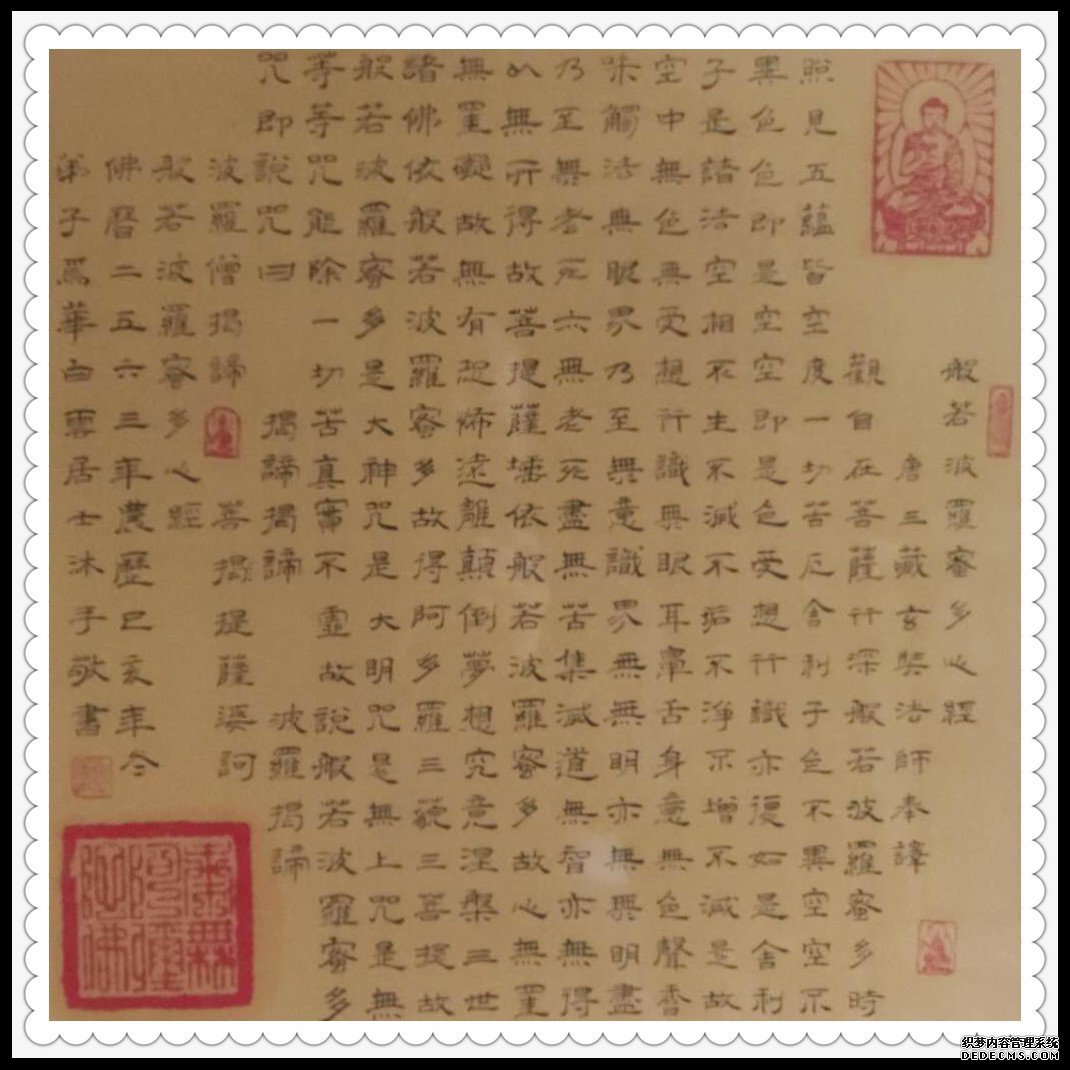 般若波羅蜜多心經
唐三藏玄奘法師奉譯
觀自在菩薩行深般若波羅蜜多時
照見五蘊皆空度一切苦厄舍利子色不異空空不
異色色即是空空即是色受想行識亦復如是舍利
子是諸法空相不生不滅不垢不淨不增不減是故
空中無色無受想行識無眼耳鼻舌身意無色聲香
味觸法無眼界乃至無意識界無無明亦無無明盡
乃至無老死亦無老死盡無苦集滅道無智亦無得
以無所得故菩提薩埵依般若波羅蜜多故心無罣
無罣礙故無有恐怖遠離顛倒夢想究竟涅槃三世
諸佛依般若波羅蜜多故得阿多羅三藐三菩提故
般若波羅蜜多是大神咒是大明咒是無上咒是無
等等咒能除一切苦真實不虛故說般若波羅蜜多
咒即說咒曰 揭諦揭諦 波羅揭諦
波羅僧揭諦 菩揭提薩婆訶
般若波羅蜜多心經
佛曆二五六三年農歷已亥年
弟子馬華白雲居士沐手敬書
织梦内容管理系统
DEDECMS.COM